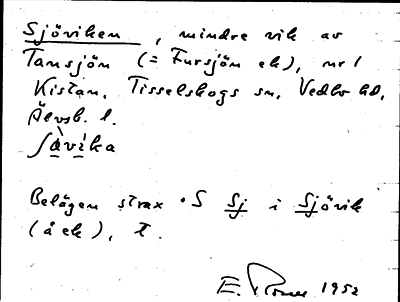 Sjöviken, mindre vik av
Tansjön (= Fursjön ek), nr 1
Kistan, Tisselskogs sn, Vedbo hd,
Älvsb. l.
ʃàvika
Belägen strax · S Sj i Sjövik
(å ek), T.
E. 1952